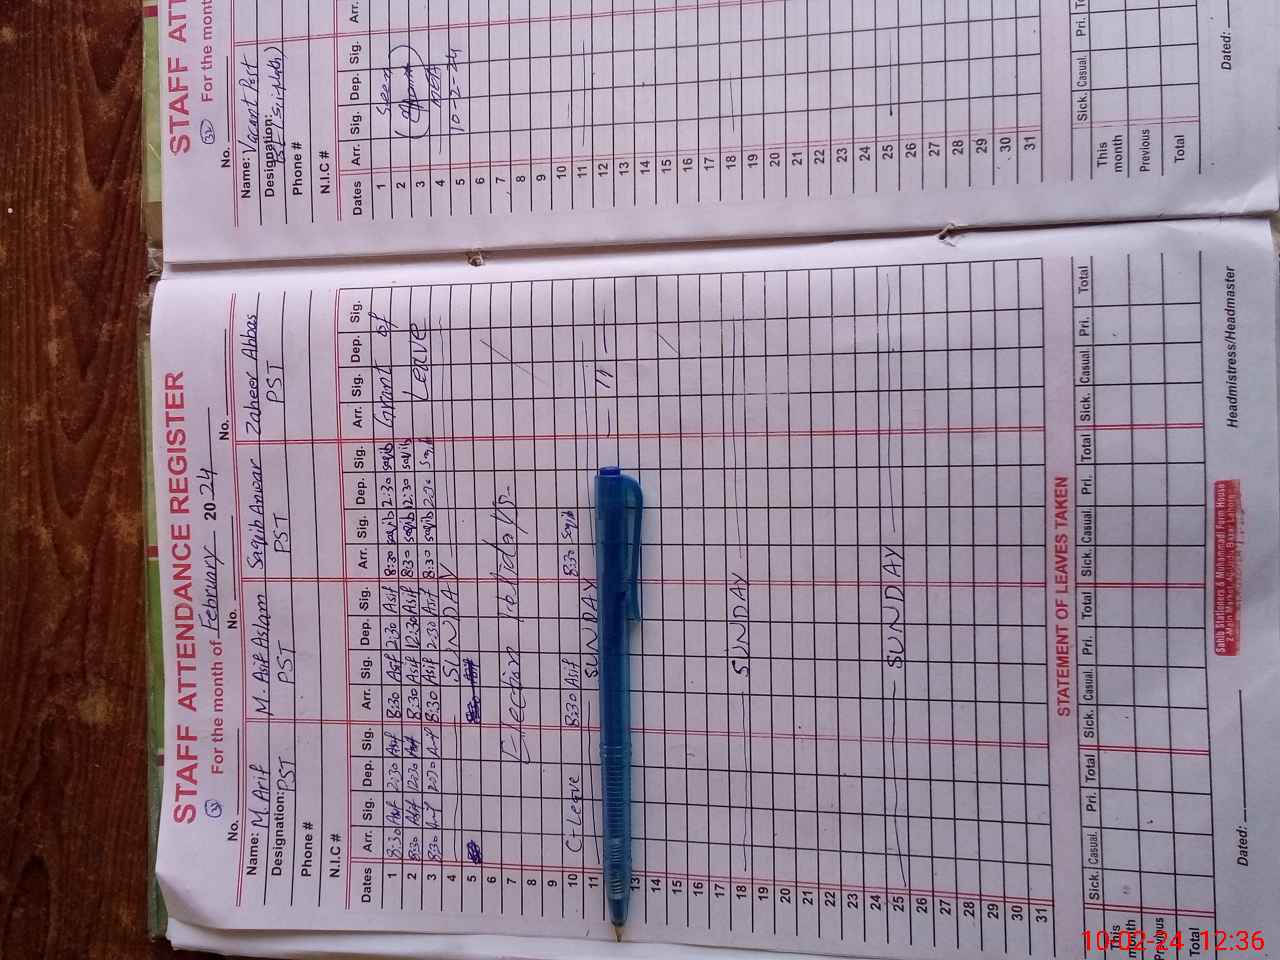 STAFF ATTENDANCE REGISTER
For the month of February 2024
No. No. No. No.
Name: M. Arif M. Asif Aslam Saqib Anwar Zaheer Abbas
Designation: PST PST PST PST
Phone #
N.I.C #
Dates Arr. Sig. Dep. Sig. Arr. Sig. Dep. Sig. Arr. Sig. Dep. Sig. Arr. Sig. Dep. Sig.
1 8:30 Arif 2:30 Arif 8:30 Asif 2:30 Asif 8:30 saqib 2:30 saqib Grant of
2 8:30 Arif 12:30 Arif 8:30 Asif 12:30 Asif 8:30 saqib 12:30 saqib Leave
3 8:30 Arif Arif 8:30 Asif 2:30 Asif 8:30 saqib saqib
4 SUNDAY
5
6
7 Election Holidays.
8
9
10 C-Leave 8:30 Asif 8:30 Saqib
11 SUNDAY — 11 —
13
14
15
16
17
18 SUNDAY
19
20
21
22
23
24
25 SUNDAY
26
27
28
29
30
31
STATEMENT OF LEAVES TAKEN
Sick. Casual. Pri. Total Sick. Casual. Pri. Total Sick. Casual. Pri. Total Sick. Casual. Pri. Total
This month
Previous
Total
Dated: Headmistress/Headmaster
Sahib Stationers & Muhammadi Form House
STAFF ATT
For the month
No.
Name: Vacant Post
Designation:
Phone #
N.I.C #
Dates Arr. Sig. Dep. Sig. Arr.
1 Seen
2
3
4 MEA
5 10-2-24
6
7
8
9
10
11
12
13
14
15
16
17
18
19
20
21
22
23
24
25
26
27
28
29
30
31
Sick. Casual. Pri.
This month
Previous
Total
Dated:
10-02-24 12:36